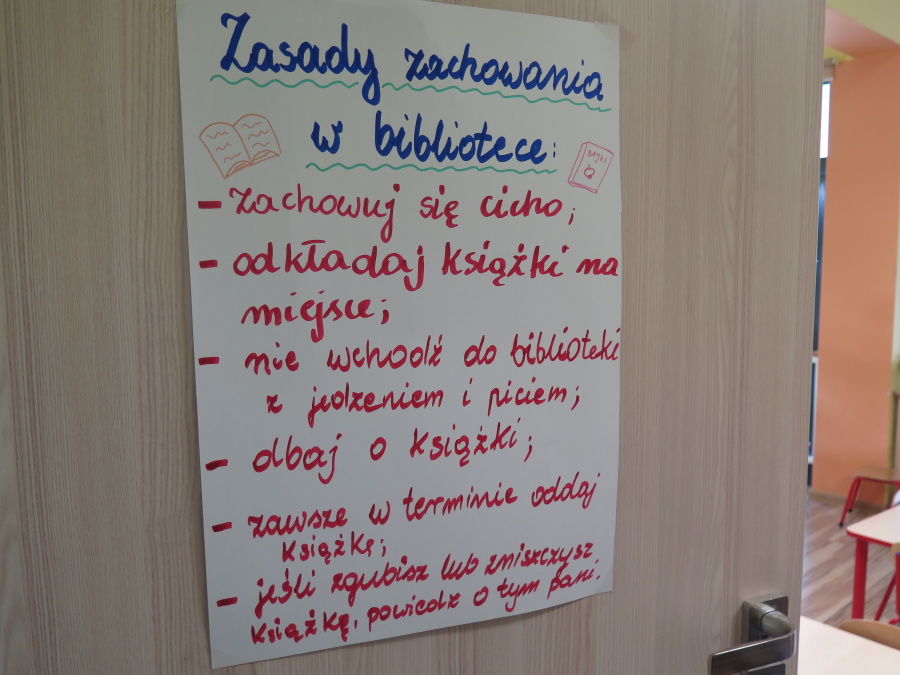 Zasady zachowania
w bibliotece:
BAJKI
- zachowuj się cicho;
- odkładaj książki na
miejsce;
- nie wchodź do biblioteki
z jedzeniem i piciem;
- dbaj o książki;
- zawsze w terminie oddaj
książkę;
- jeśli zgubisz lub zniszczysz
książkę, powiedz o tym pani.